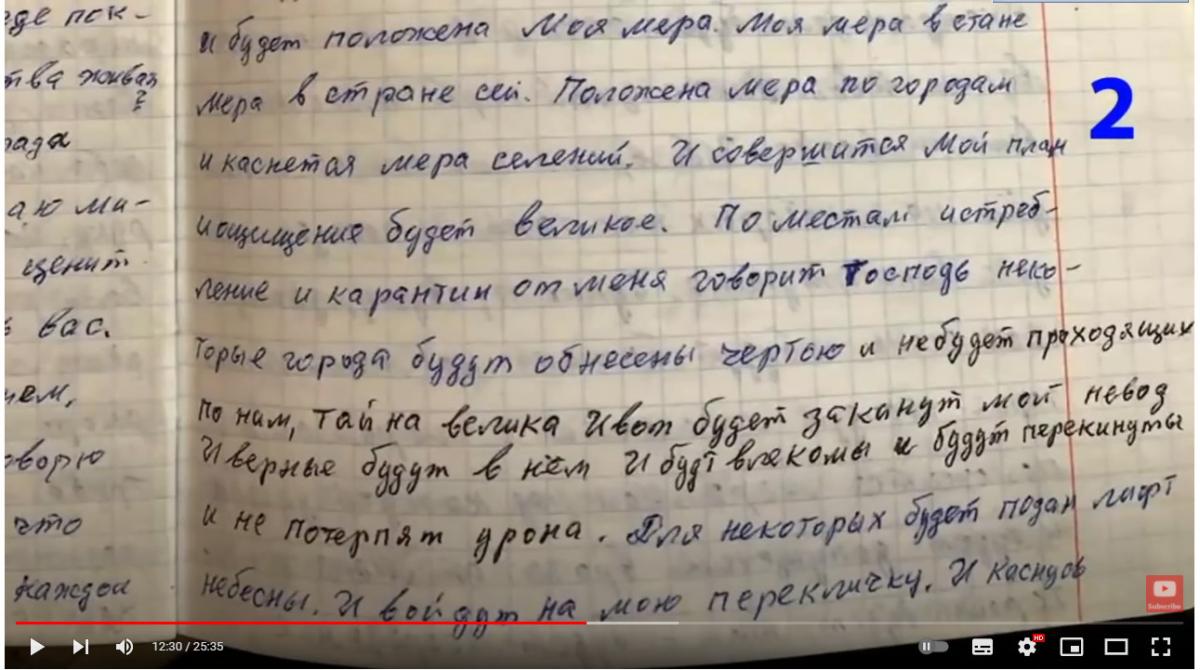 еде пок-
тва живая
?
рада
аю ми-
ценит
вас.
ием,
оворю
что
каждой
и будет положена Моя мера. Моя мера в стане
мера в стране сей. Положена мера по городам
и каснетая мера селений. И совершится Мой план
иощищение будет великое. По местам истреб-
ление и карантин от меня говорит Господь неко-
торые города будут обнесены чертою и небудет проходящих
по ним, тайна велика Ивот будет закинут мой невод
И верные будут в нём И будт влекомы и будут перекинуты
и не потерпят урона. Для некоторых будет подан лифт
небесны. И войдут на мою перекличку. И каснусь
2
Subscribe
12:30 / 25:35
HD